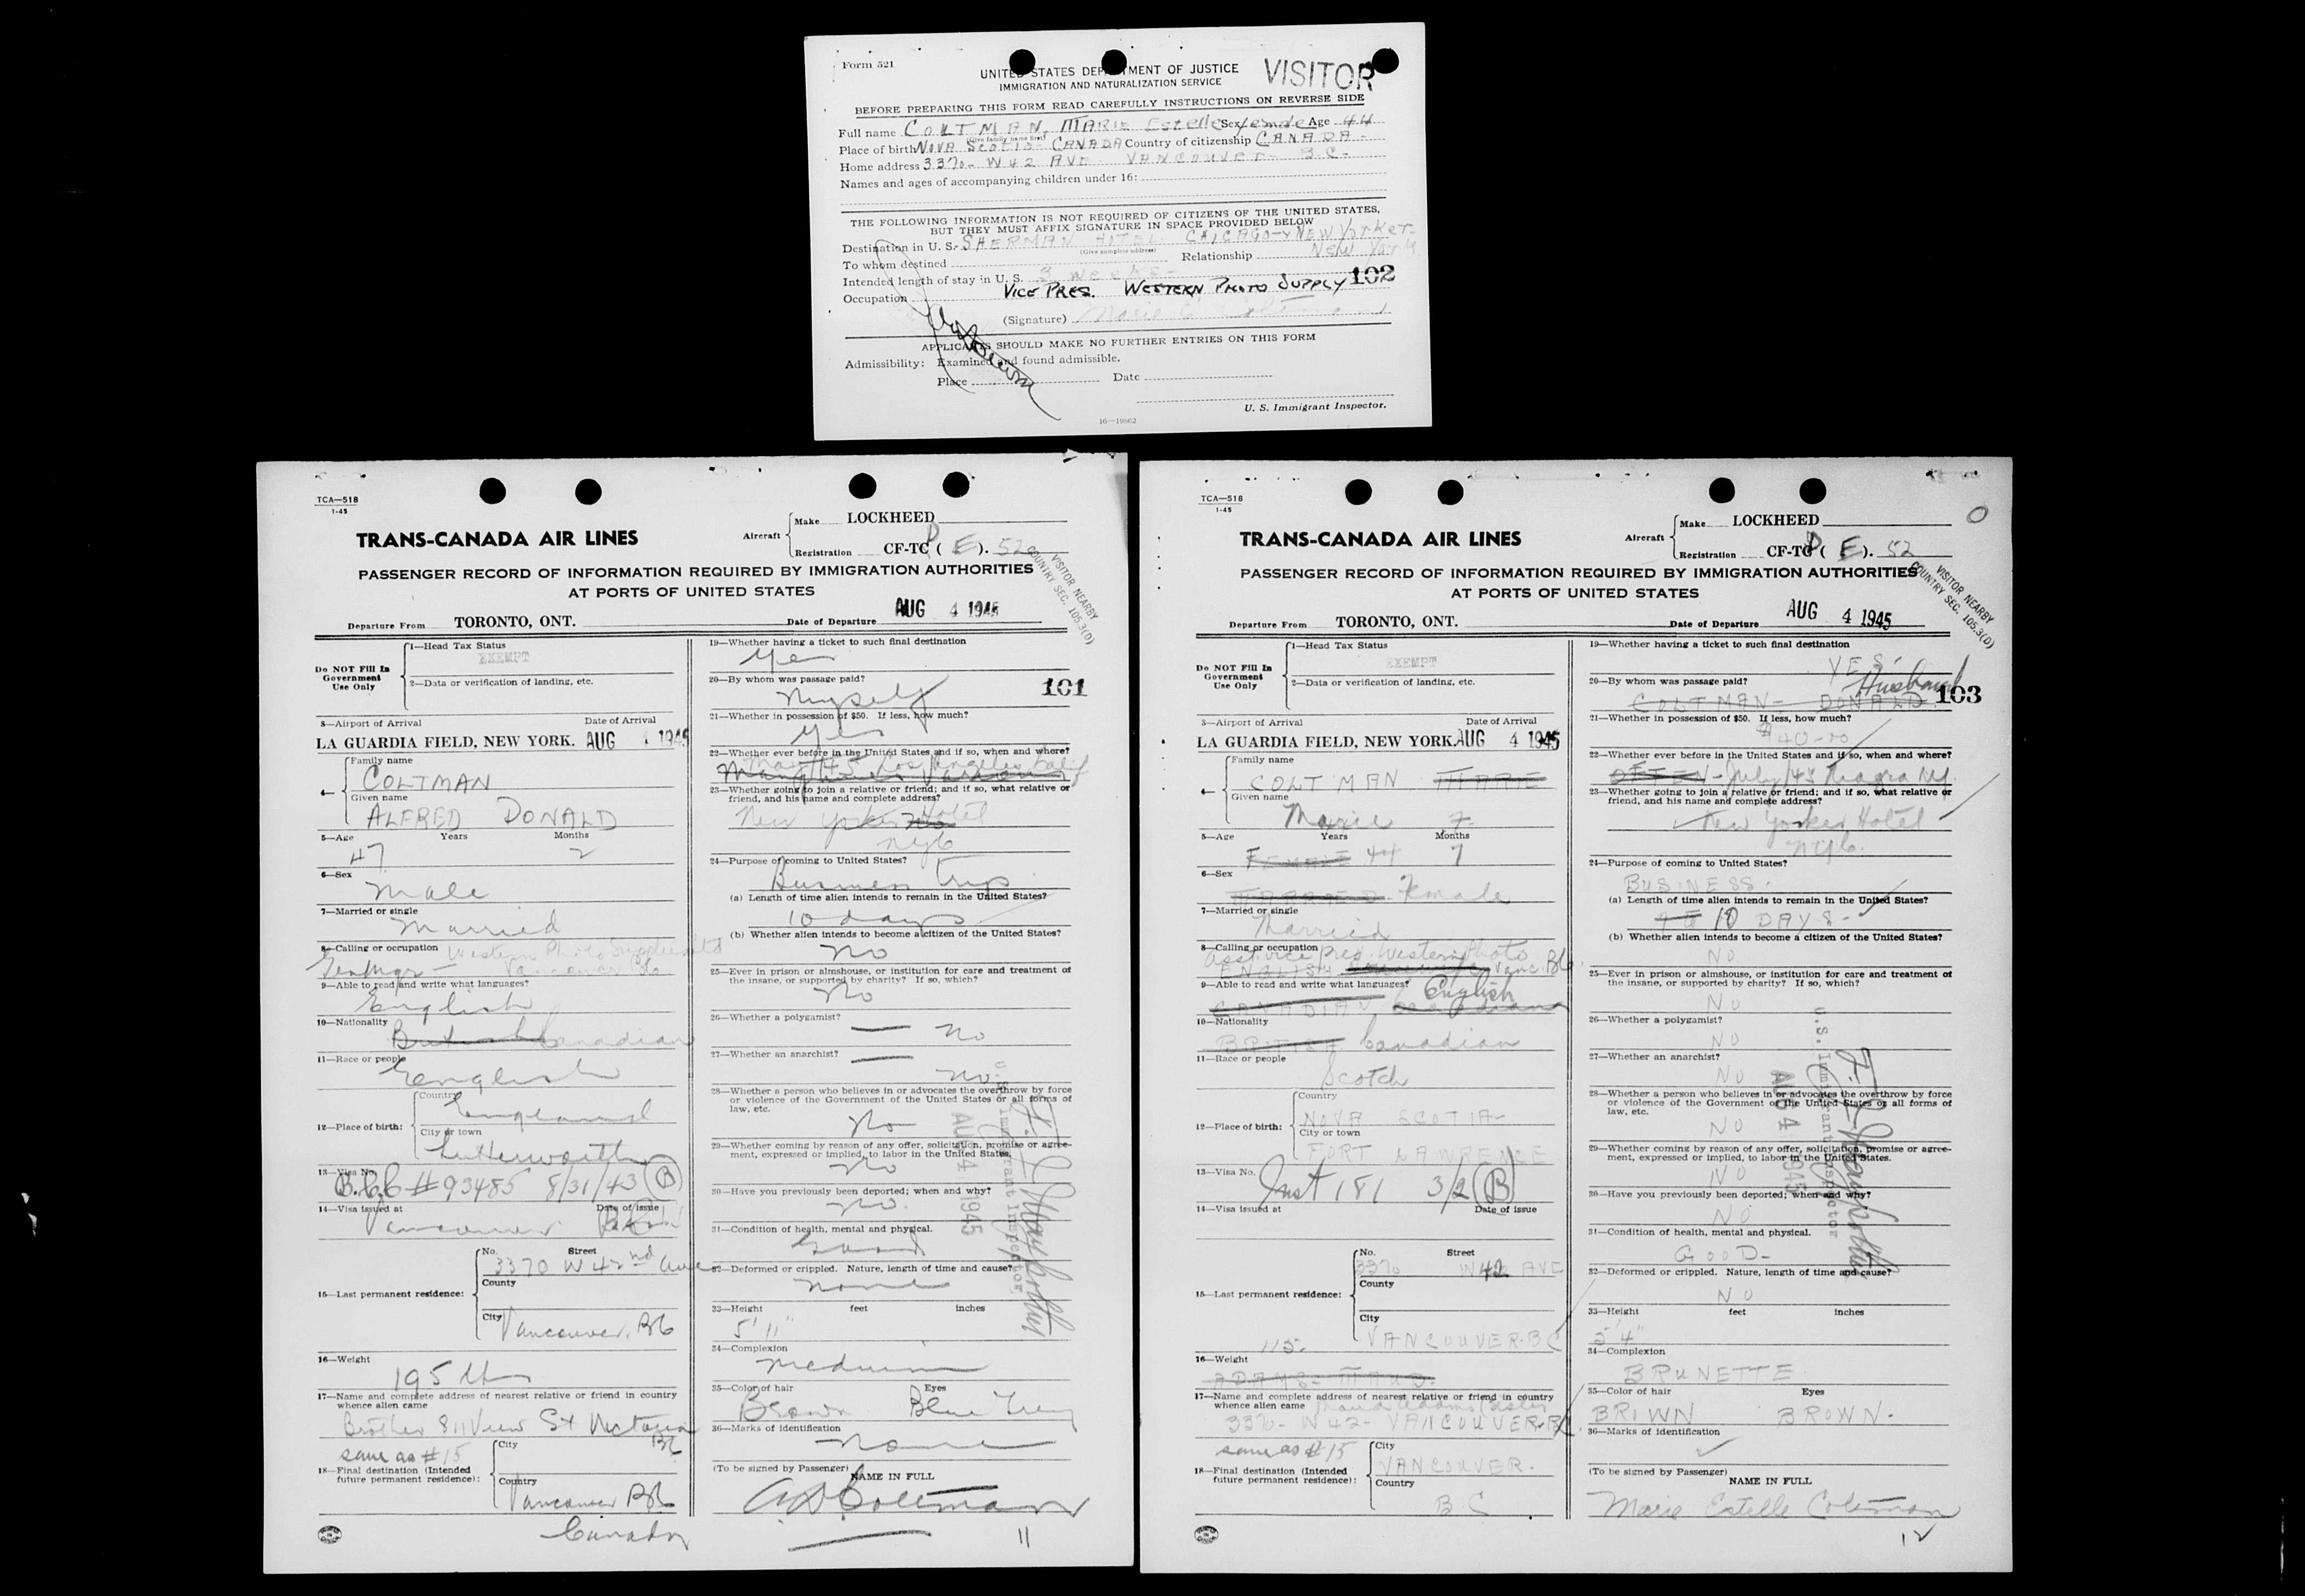 Form 521
UNITED STATES DEPARTMENT OF JUSTICE
VISITOR
IMMIGRATION AND NATURALIZATION SERVICE
BEFORE PREPARING THIS FORM READ CAREFULLY INSTRUCTIONS ON REVERSE SIDE
Full name COLTMAN, MARIE Estelle Sex female Age 44
(Give family name first)
Place of birth NOVA SCOTIA - CANADA Country of citizenship CANADA -
Home address 3370 - W 42 AVE VANCOUVER - B.C -
Names and ages of accompanying children under 16:
THE FOLLOWING INFORMATION IS NOT REQUIRED OF CITIZENS OF THE UNITED STATES,
BUT THEY MUST AFFIX SIGNATURE IN SPACE PROVIDED BELOW
Destination in U. S. SHERMAN HOTEL CHICAGO - NEW Yorker -
(Give complete address)
To whom destined Relationship New York
Intended length of stay in U. S. 3 weeks -
102
Occupation VICE PRES. WESTERN PHOTO SUPPLY
(Signature) Marie E Coltman
APPLICANTS SHOULD MAKE NO FURTHER ENTRIES ON THIS FORM
Admissibility: Examined and found admissible.
Place Date
U. S. Immigrant Inspector.
16—19862
TCA—518
1-45
TRANS-CANADA AIR LINES
Aircraft Make LOCKHEED
Registration CF-TC (E). 52
PASSENGER RECORD OF INFORMATION REQUIRED BY IMMIGRATION AUTHORITIES
AT PORTS OF UNITED STATES
VISITOR NEARBY
COUNTRY SEC. 105.3(D)
Departure From TORONTO, ONT. Date of Departure AUG 4 1945
Do NOT Fill In Government Use Only
1—Head Tax Status
EXEMPT
2—Data or verification of landing, etc.
3—Airport of Arrival Date of Arrival
LA GUARDIA FIELD, NEW YORK. AUG 4 1945
4— Family name
COLTMAN
Given name
ALFRED DONALD
5—Age Years Months
47 2
6—Sex
Male
7—Married or single
Married
8—Calling or occupation Western Photo Supplies Ltd
Gen Mgr — Vancouver Bc
9—Able to read and write what languages?
English
10—Nationality
British Canadian
11—Race or people
English
12—Place of birth: Country
England
City or town
Lutterworth
13—Visa No.
B.C.C #93485 8/31/43 (B)
14—Visa issued at Date of issue
Vancouver
15—Last permanent residence: No. Street
3370 W 42nd Ave
County
City
Vancouver, BC
16—Weight
195 lbs
17—Name and complete address of nearest relative or friend in country
whence alien came
Brother 811 View St Victoria
BC
same as #15
18—Final destination (Intended future permanent residence): City
Country
Vancouver BC
Canada
19—Whether having a ticket to such final destination
yes
20—By whom was passage paid?
101
Myself
21—Whether in possession of $50. If less, how much?
yes
22—Whether ever before in the United States and if so, when and where?
45 Los Angeles, Calif
23—Whether going to join a relative or friend; and if so, what relative or
friend, and his name and complete address?
New Yorker Hotel
NYC
24—Purpose of coming to United States?
Business Trip
(a) Length of time alien intends to remain in the United States?
10 days
(b) Whether alien intends to become a citizen of the United States?
No
25—Ever in prison or almshouse, or institution for care and treatment of
the insane, or supported by charity? If so, which?
No
26—Whether a polygamist?
— No
27—Whether an anarchist?
— No
28—Whether a person who believes in or advocates the overthrow by force
or violence of the Government of the United States or all forms of
law, etc.
No
29—Whether coming by reason of any offer, solicitation, promise or agree-
ment, expressed or implied, to labor in the United States.
No
30—Have you previously been deported; when and why?
No.
31—Condition of health, mental and physical.
Good
32—Deformed or crippled. Nature, length of time and cause?
none
33—Height feet inches
5' 11"
34—Complexion
medium
35—Color of hair Eyes
Brown Blue Grey
36—Marks of identification
None
(To be signed by Passenger) NAME IN FULL
A D Coltman
11
AUG 4 1945
U.S. Immigrant Inspector
TCA—518
1-45
TRANS-CANADA AIR LINES
Aircraft Make LOCKHEED
Registration CF-TC (E). 52
PASSENGER RECORD OF INFORMATION REQUIRED BY IMMIGRATION AUTHORITIES
AT PORTS OF UNITED STATES
VISITOR NEARBY
COUNTRY SEC. 105.3(D)
Departure From TORONTO, ONT. Date of Departure AUG 4 1945
Do NOT Fill In Government Use Only
1—Head Tax Status
EXEMPT
2—Data or verification of landing, etc.
3—Airport of Arrival Date of Arrival
LA GUARDIA FIELD, NEW YORK. AUG 4 1945
4— Family name
COLTMAN MARIE
Given name
Marie 7
5—Age Years Months
FEMALE 44 7
6—Sex
MARRIED Female
7—Married or single
Married
8—Calling or occupation
Asst vice pres. Western Photo
ENGLISH Vanc. BC
9—Able to read and write what languages? English
CANADIAN
10—Nationality
BRITISH Canadian
11—Race or people
Scotch
12—Place of birth: Country
NOVA SCOTIA -
City or town
FORT LAWRENCE
13—Visa No.
Inst 181 3/2 (B)
14—Visa issued at Date of issue
15—Last permanent residence: No. Street
3370 W 42 AVE
County
City
VANCOUVER. BC
115
16—Weight
ADAMS - MAUD.
17—Name and complete address of nearest relative or friend in country
whence alien came Maud Adams (sister)
3370 - W 42 - VANCOUVER - BC.
same as #15
18—Final destination (Intended future permanent residence): City
VANCOUVER.
Country
B C
19—Whether having a ticket to such final destination
YES.
20—By whom was passage paid? Husband
COLTMAN - DONALD. 103
21—Whether in possession of $50. If less, how much?
$40-00
22—Whether ever before in the United States and if so, when and where?
OFTEN - July/43 Niagra NY.
23—Whether going to join a relative or friend; and if so, what relative or
friend, and his name and complete address?
New Yorker Hotel
NYC.
24—Purpose of coming to United States?
BUSINESS.
(a) Length of time alien intends to remain in the United States?
10 DAYS -
(b) Whether alien intends to become a citizen of the United States?
NO
25—Ever in prison or almshouse, or institution for care and treatment of
the insane, or supported by charity? If so, which?
NO
26—Whether a polygamist?
NO
27—Whether an anarchist?
NO
28—Whether a person who believes in or advocates the overthrow by force
or violence of the Government of the United States or all forms of
law, etc.
NO
29—Whether coming by reason of any offer, solicitation, promise or agree-
ment, expressed or implied, to labor in the United States.
NO
30—Have you previously been deported; when and why?
NO
31—Condition of health, mental and physical.
GOOD -
32—Deformed or crippled. Nature, length of time and cause?
NO
33—Height feet inches
5' 4"
34—Complexion
BRUNETTE
35—Color of hair Eyes
BROWN BROWN.
36—Marks of identification
(To be signed by Passenger) NAME IN FULL
Marie Estelle Coltman
12
AUG 4 1945
U.S. Immigrant Inspector